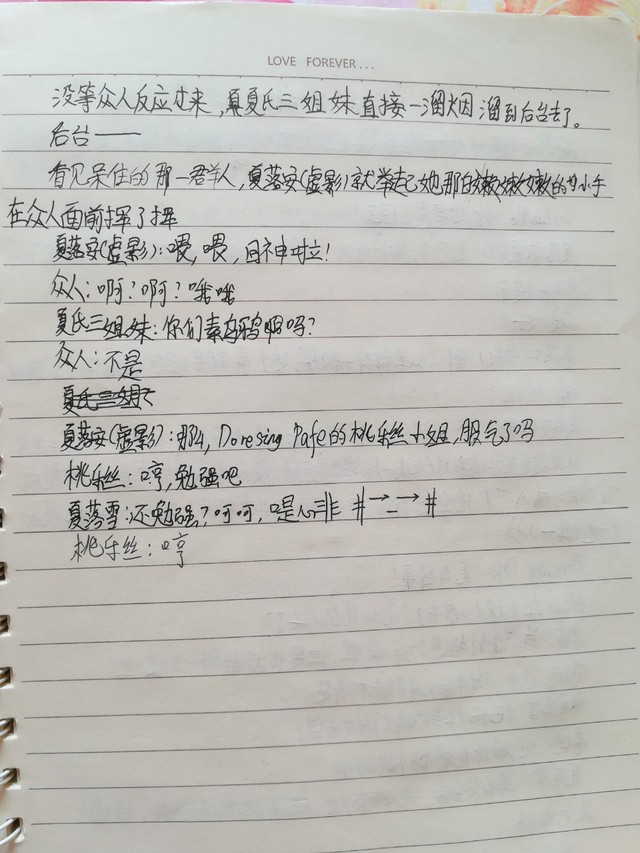 LOVE FOREVER...
没等众人反应过来，夏氏三姐妹直接一溜烟溜到后台去了。
后台——
看见呆住的那一群人，夏落安(虚影)就举起她那白嫩嫩嫩的小手
在众人面前挥了挥
夏落安(虚影)：喂，喂，回神啦！
众人：啊？啊？哦哦
夏氏三姐妹：你们素乌鸦啊吗？
众人：不是
夏氏三姐
夏落安(虚影)：那么，Doresing Pafe的桃乐丝小姐，服气了吗
桃乐丝：哼，勉强吧
夏落雪：还勉强？呵呵，口是心非 #→_→#
桃乐丝：哼